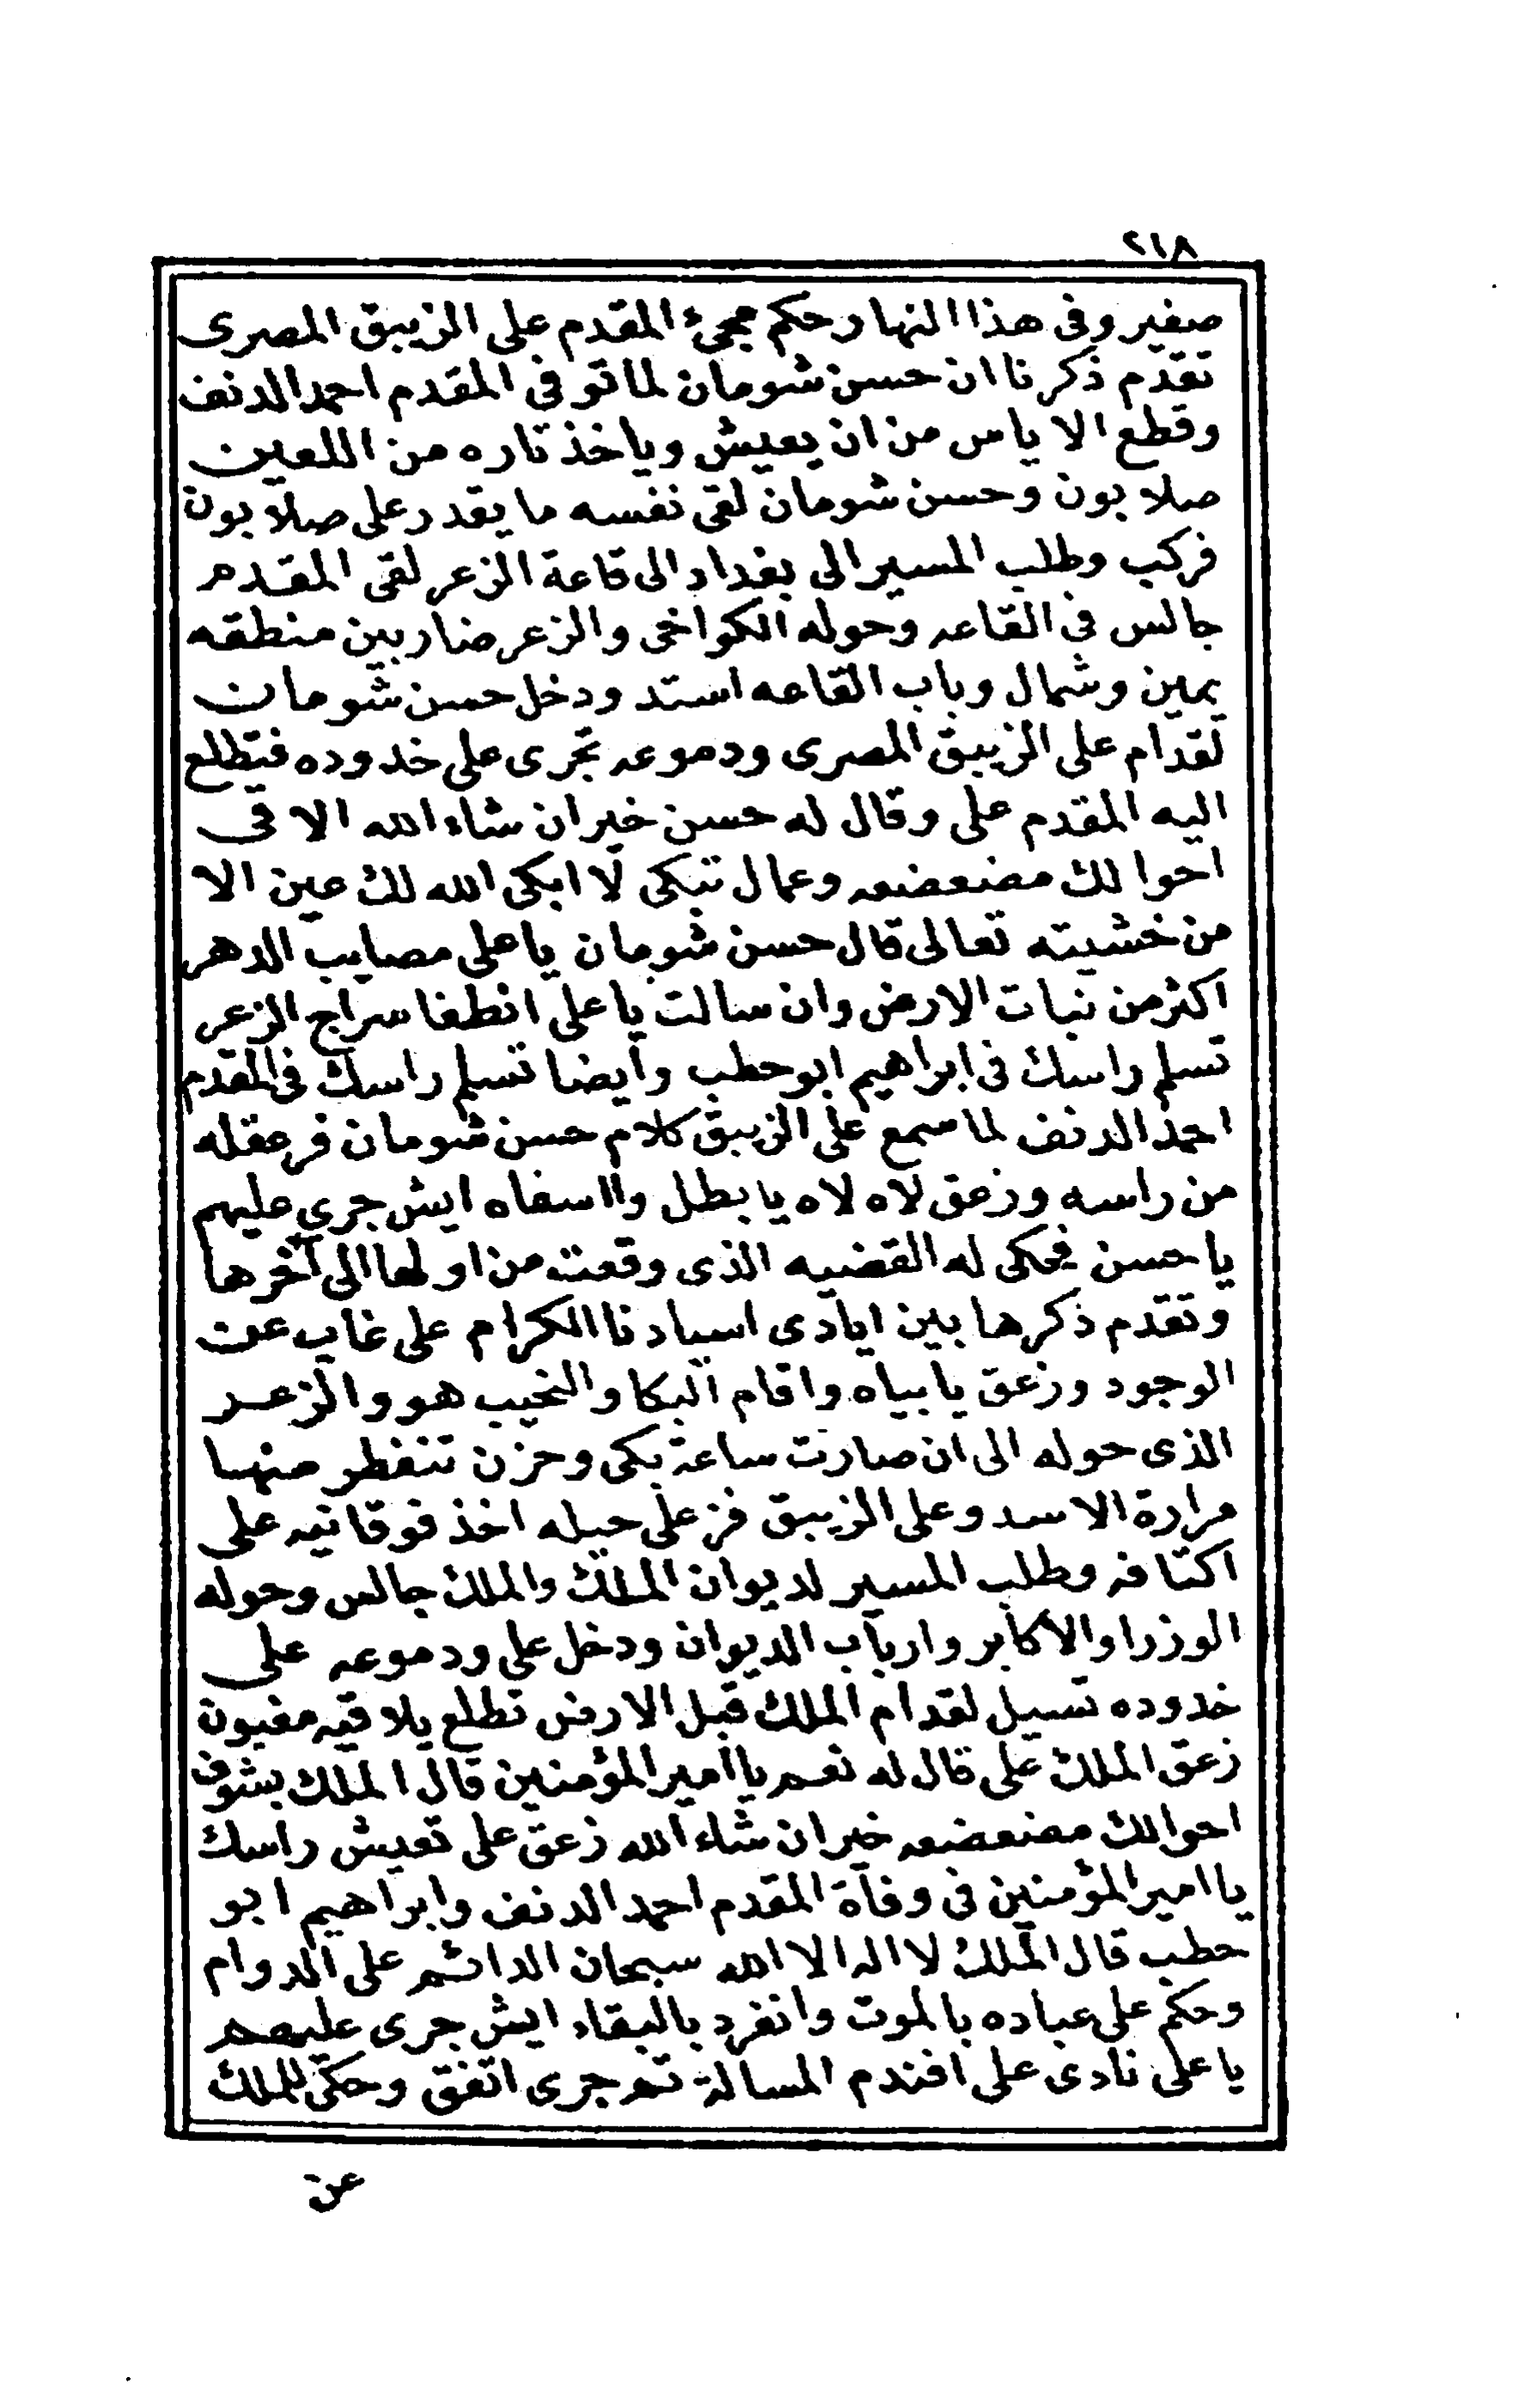 ٢١٨
صغير وفى هذا النهار حكم مجىء المقدم على الزيبق المصرى
تقدم ذكرنا ان حسن شومان لما توفى المقدم احمد الدنف
وقطع الاياس من ان يعيش وياخذ تاره من اللعين
صلابون وحسن شومان لقى نفسه ما يقدر على صلابون
فركب وطلب المسير الى بغداد الى قاعة الزعر لقى المقدم
جالس فى القاعه وحوله الكواخى والزعر ضاربين منطقه
يمين وشمال وباب القاعه استد ودخل حسن شومان
لقدام على الزيبق المصرى ودموعه تجرى على خدوده فتطلع
اليه المقدم على وقال له حسن خير ان شاء الله الا فى
احوالك مضعضعه وعمال تبكى لا ابكى الله لك عين الا
من خشيته تعالى قال حسن شومان يا على مصايب الدهر
اكثر من نبات الارض وان سالت يا على انطفا سراج الزعر
تسلم راسك فى ابراهيم ابو حطب وايضا تسلم راسك فى المقدم
احمد الدنف لما سمع على الزيبق كلام حسن شومان فر عقله
من راسه وزعق لاه لاه يا بطل وااسفاه ايش جرى عليهم
يا حسن فحكى له القضيه الذى وقعت من اولها الى آخرها
وتقدم ذكرها بين ايادى اسيادنا الكرام على غاب عن
الوجود وزعق يا بياه واقام البكا والنحيب هو والزعر
الذى حوله الى ان صارت ساعة بكى وحزن تنفطر منها
مرارة الاسد وعلى الزيبق فز على حيله اخذ فوقانيه على
اكتافه وطلب المسير لديوان الملك والملك جالس وحوله
الوزرا والاكابر وارباب الديوان ودخل على ودموعه على
خدوده تسيل لقدام الملك قبل الارض تطلع يلاقيه مغبون
زعق الملك على قال له نعم يا امير المؤمنين قال الملك بشوف
احوالك مضعضعه خير ان شاء الله زعق على تعيش راسك
يا امير المؤمنين فى وفاة المقدم احمد الدنف وابراهيم ابو
حطب قال الملك لا اله الا الله سبحان الدائم على الدوام
وحكم على عباده بالموت وانفرد بالبقاء ايش جرى عليهم
يا على نادى على افندم المسالة تم جرى اتفق وحكى للملك
عن